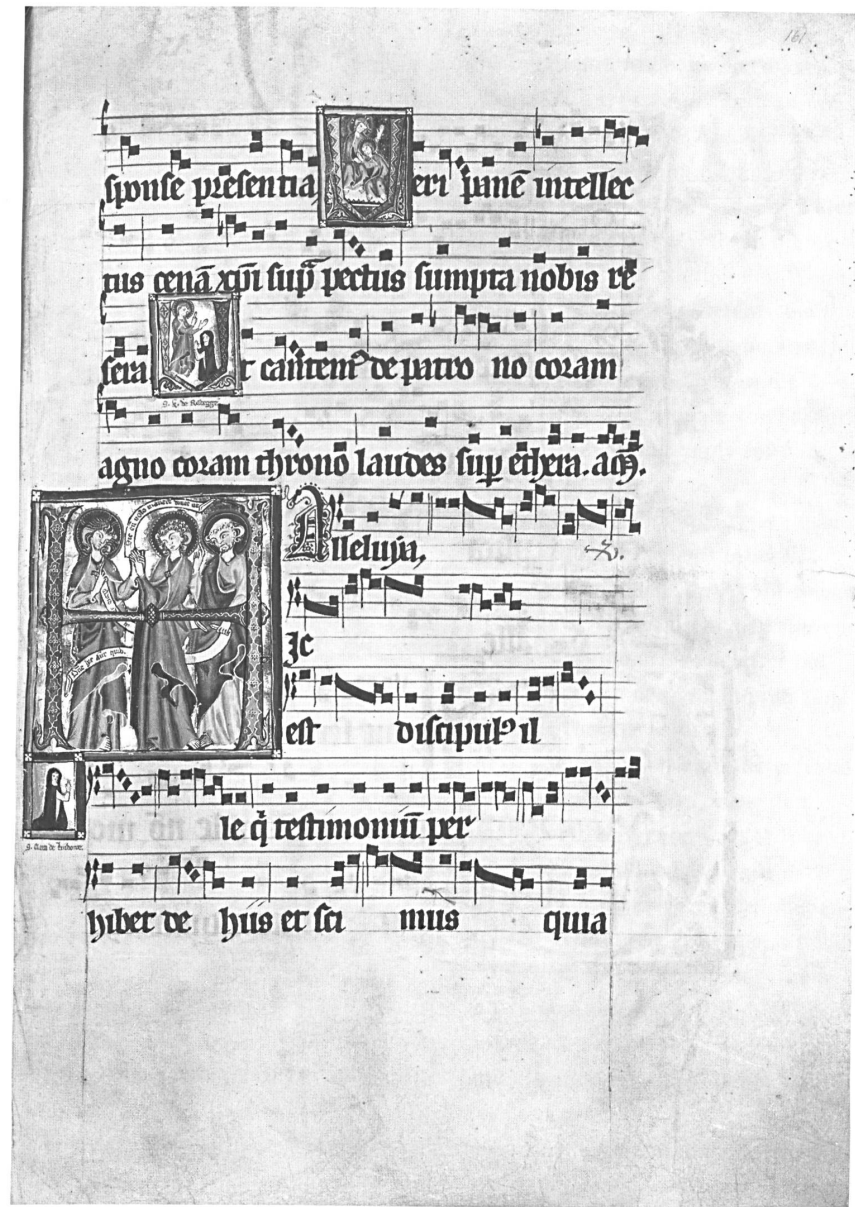 161
sponse presentia eri panē intellec
tus cenā xp̄i sup̄ pectus sumpta nobis re
serat t cantemꝰ de patro no coram
agno coram thronō laudes sup ethera. am̄.
Alleluja,
Ic
est discipulꝰ il
le q̄ testimoniū per
hibet de hiis et sci mus quia